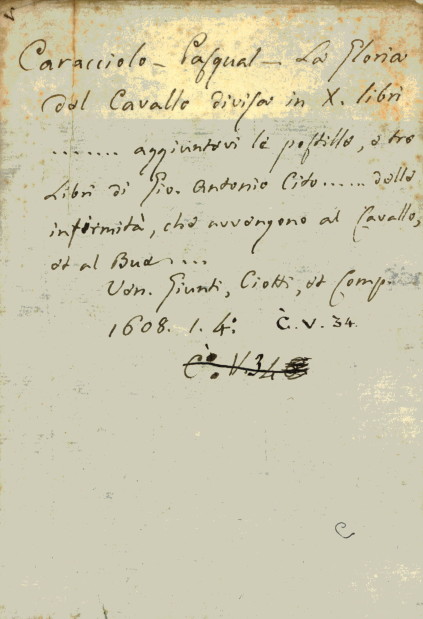 Caracciolo - Pasqual - La Gloria
del Cavallo divisa in X. libri
....... aggiuntovi le postille, e tre
Libri di Gio. Antonio Cito ...... delle
infirmità, che avvengono al Cavallo,
et al Bue ....
Ven. Giunti, Ciotti, et Comp.
1608. 1. 4: C. V. 34.
C. V. 34